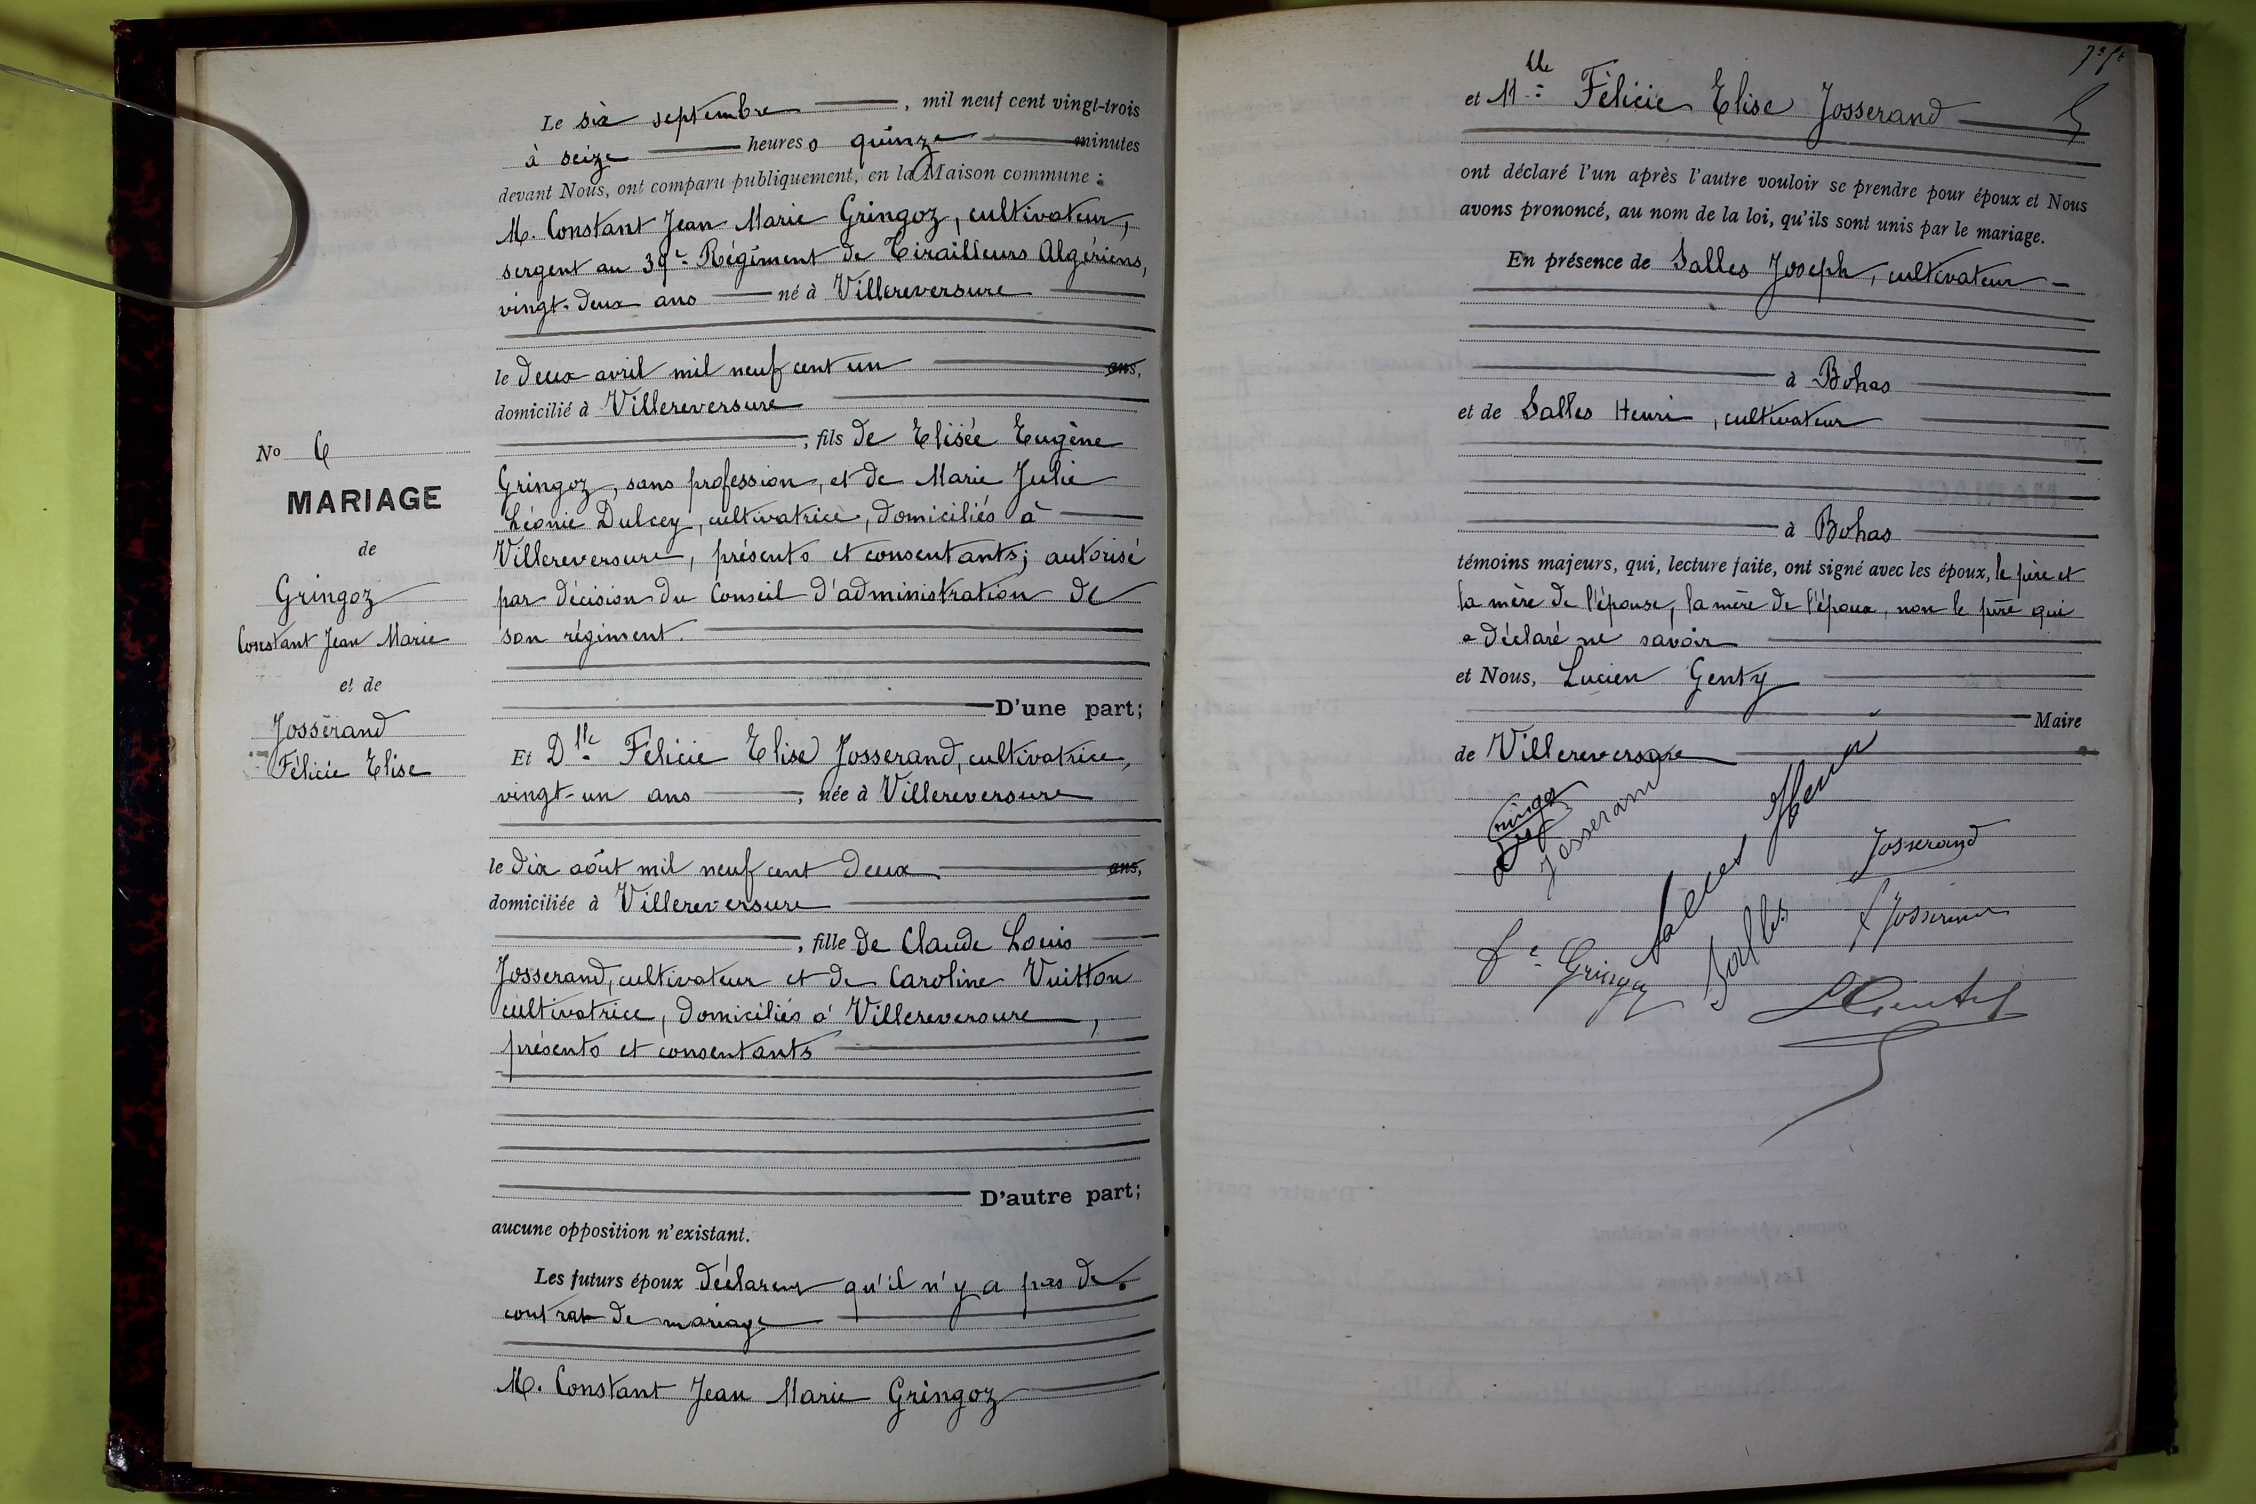 No 6
MARIAGE
de
Gringoz
Constant Jean Marie
et de
Josserand
Félicie Elise
Le six septembre , mil neuf cent vingt-trois
à seize heures quinze minutes
devant Nous, ont comparu publiquement, en la Maison commune :
M. Constant Jean Marie Gringoz, cultivateur,
sergent au 39e Régiment de Tirailleurs Algériens,
vingt-deux ans né à Villereversure
le deux avril mil neuf cent un ans,
domicilié à Villereversure
, fils de Elisée Eugène
Gringoz, sans profession, et de Marie Julie
Léonie Dulcey, cultivatrice, domiciliés à
Villereversure, présents et consentants; autorisé
par décision du Conseil d'administration de
son régiment.
D'une part;
Et Dlle Félicie Elise Josserand, cultivatrice,
vingt-un ans , née à Villereversure
le dix août mil neuf cent deux ans,
domiciliée à Villereversure
, fille de Claude Louis
Josserand, cultivateur et de Caroline Vuitton
cultivatrice, domiciliés à Villereversure,
présents et consentants
D'autre part;
aucune opposition n'existant.
Les futurs époux déclarent qu'il n'y a pas de
contrat de mariage
M. Constant Jean Marie Gringoz
et Mlle Félicie Elise Josserand
ont déclaré l'un après l'autre vouloir se prendre pour époux et Nous
avons prononcé, au nom de la loi, qu'ils sont unis par le mariage.
En présence de Salles Joseph, cultivateur
à Bohas
et de Salles Henri, cultivateur
à Bohas
témoins majeurs, qui, lecture faite, ont signé avec les époux, le père et
la mère de l'épouse, la mère de l'époux, non le père qui
a déclaré ne savoir
et Nous, Lucien Genty
Maire
de Villereversure
Josserand
Salles Henri
Josserand
Gringoz
Salles
Josserand
LGenty